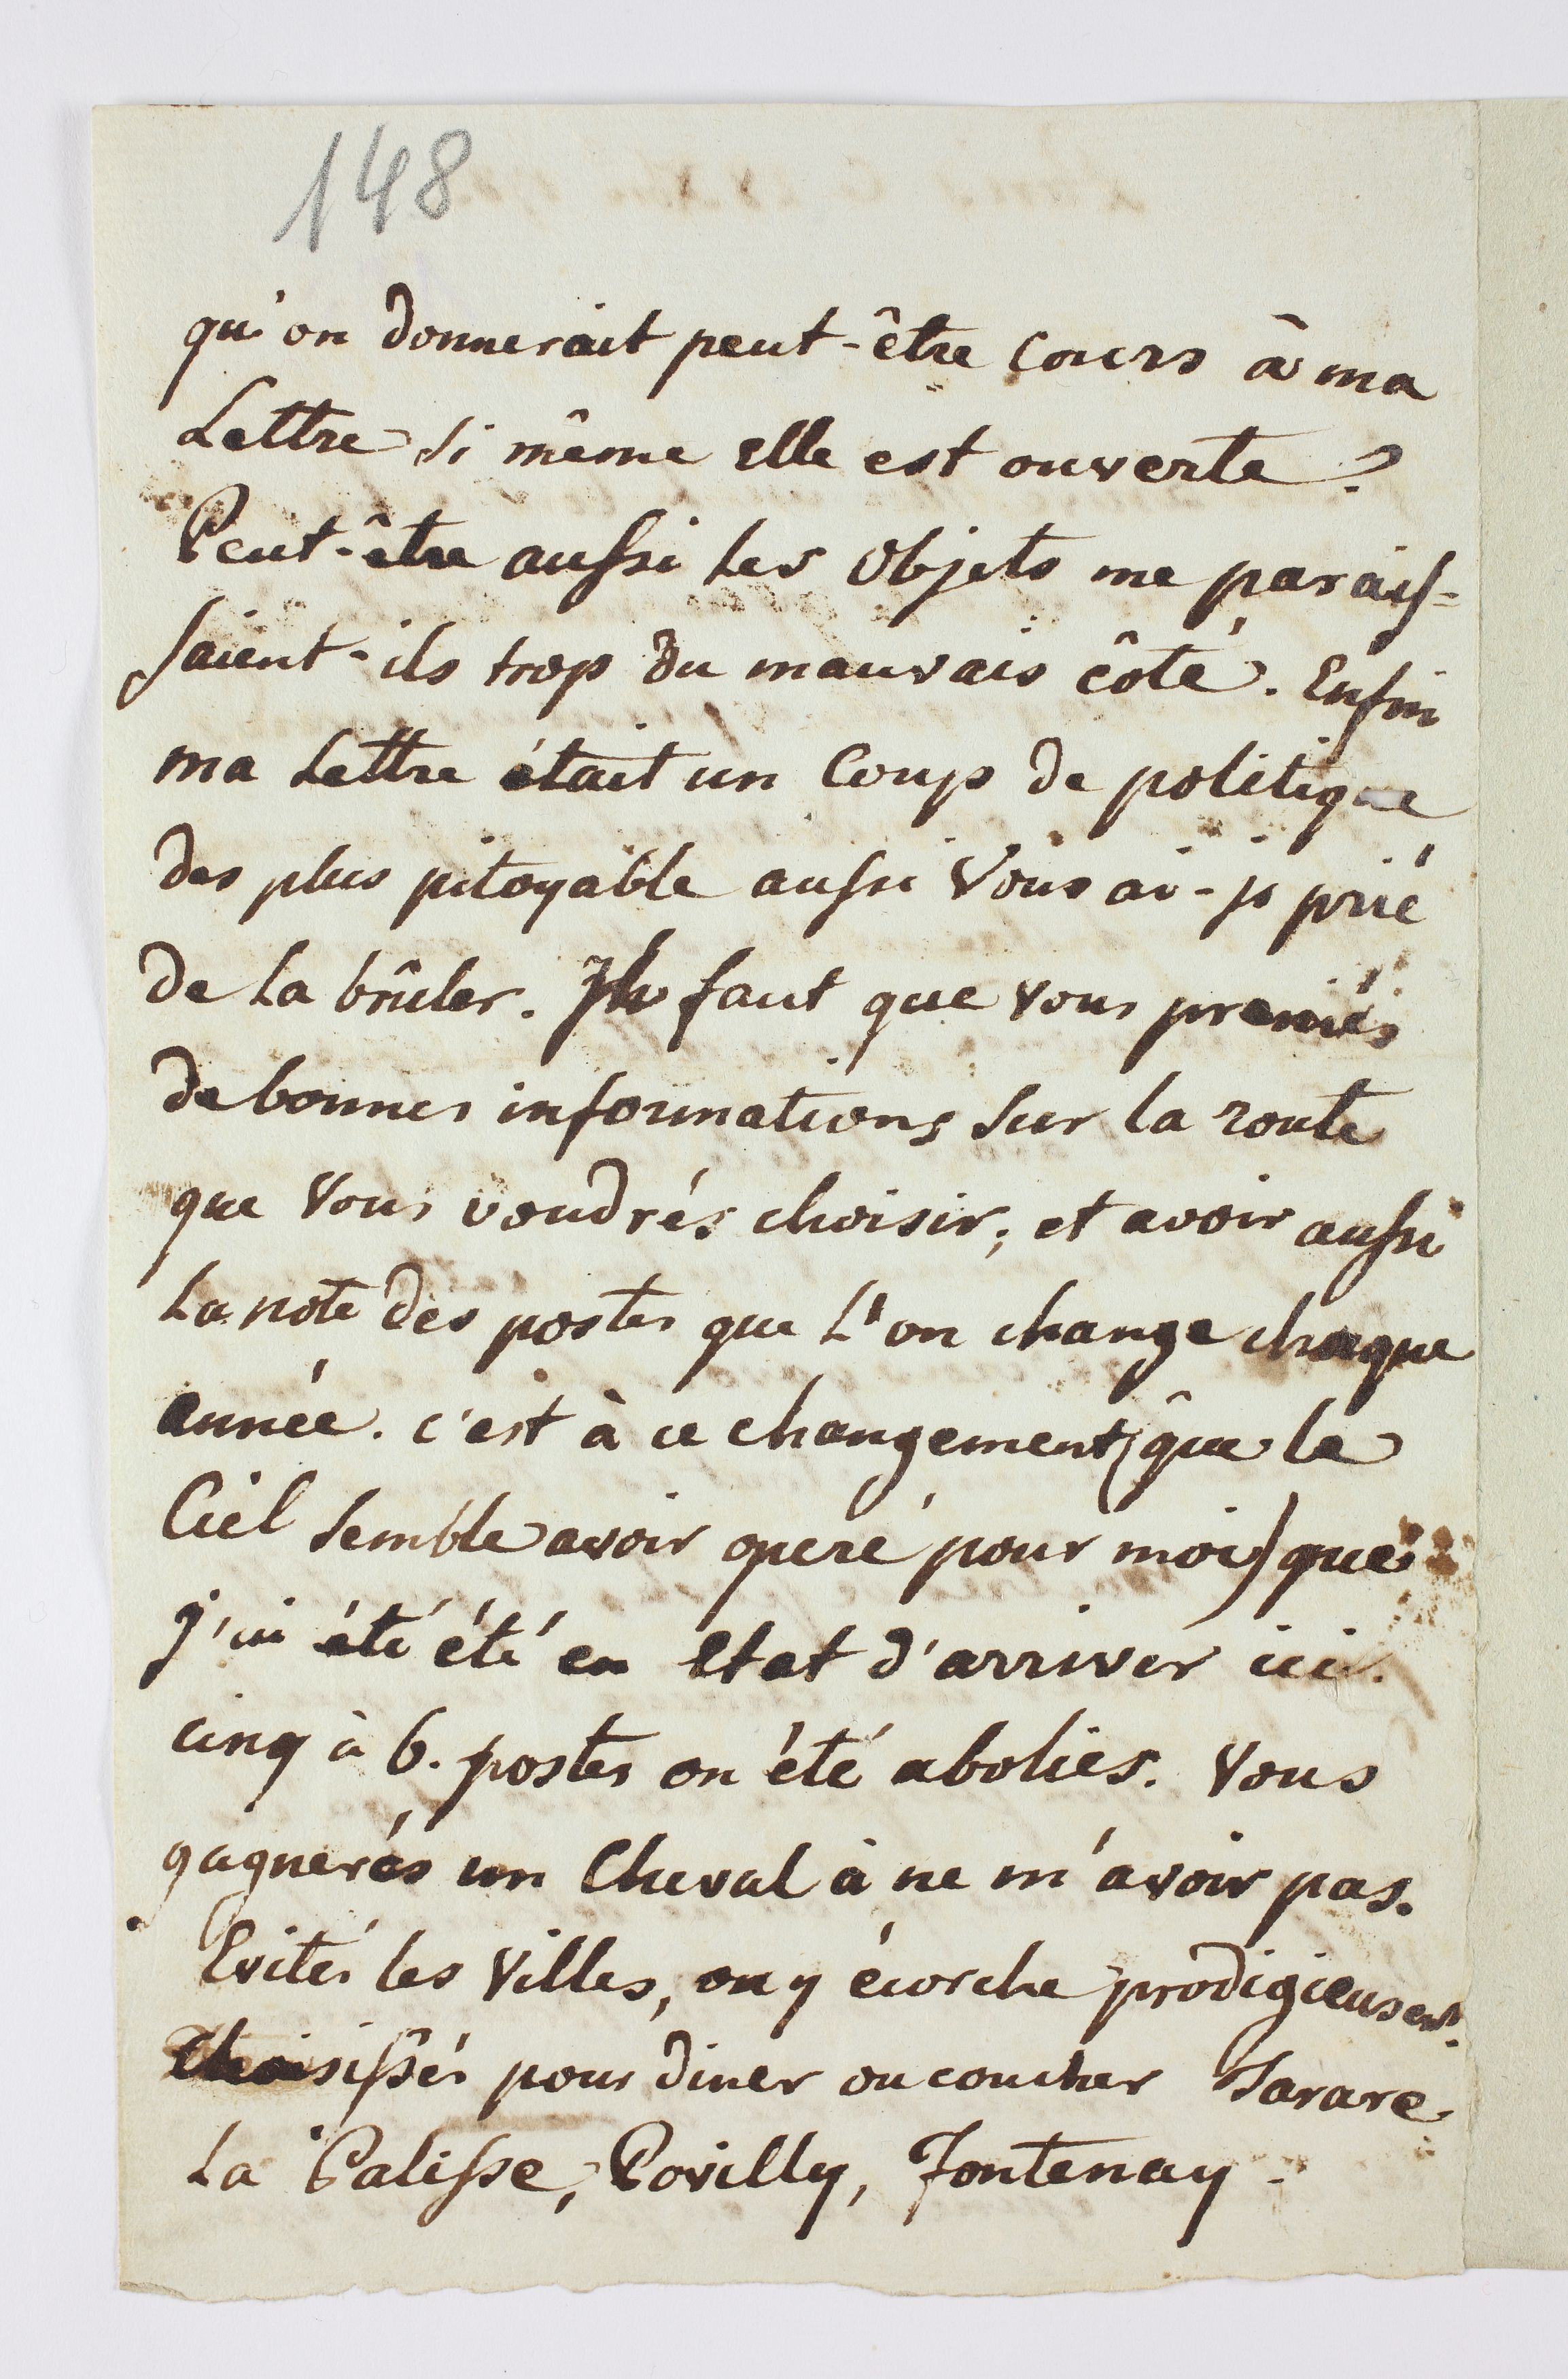 148
qu'on donnerait peut-être Cours à ma
Lettre si même Elle est ouverte?
Peut-être aussi les Objets me parais-
saient-ils trop du mauvais côté. Enfin
ma Lettre était un Coup de politique
des plus pitoyable aussi Vous ai-je prié
de la brûler. Il faut que vous preniés
de bonnes informations sur la route
que Vous voudrés choisir; et avoir aussi
la note des postes que l'on change chaque
année. c'est à ce changement (que le
Ciel semble avoir operé pour moi) que
j'ai été été en Etat d'arriver ici.
cinq à 6. postes on été abolies. Vous
gagnerés un Cheval à ne m'avoir pas.
Evités les Villes, on y écorche prodigieusent.
Choisissés pour diner ou coucher Tarare
La Palisse, Povilly, Fontenay